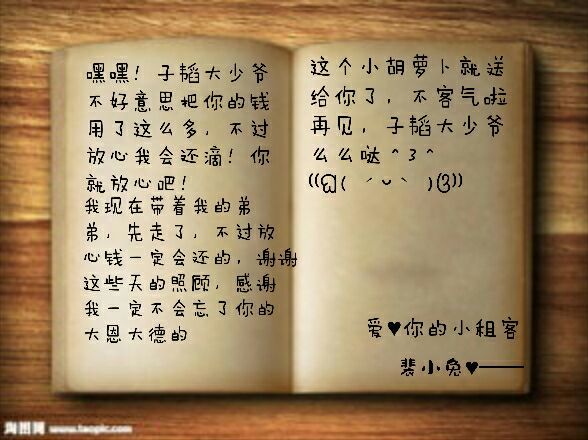 嘿嘿！子韬大少爷
不好意思把你的钱
用了这么多，不过
放心我会还滴！你
就放心吧！
我现在带着我的弟
弟，先走了，不过放
心钱一定会还的，谢谢
这些天的照顾，感谢
我一定不会忘了你的
大恩大德的
这个小胡萝卜就送
给你了，不客气啦
再见，子韬大少爷
么么哒^3^
爱♥你的小租客
裴小兔♥——
淘图网 www.taopic.com